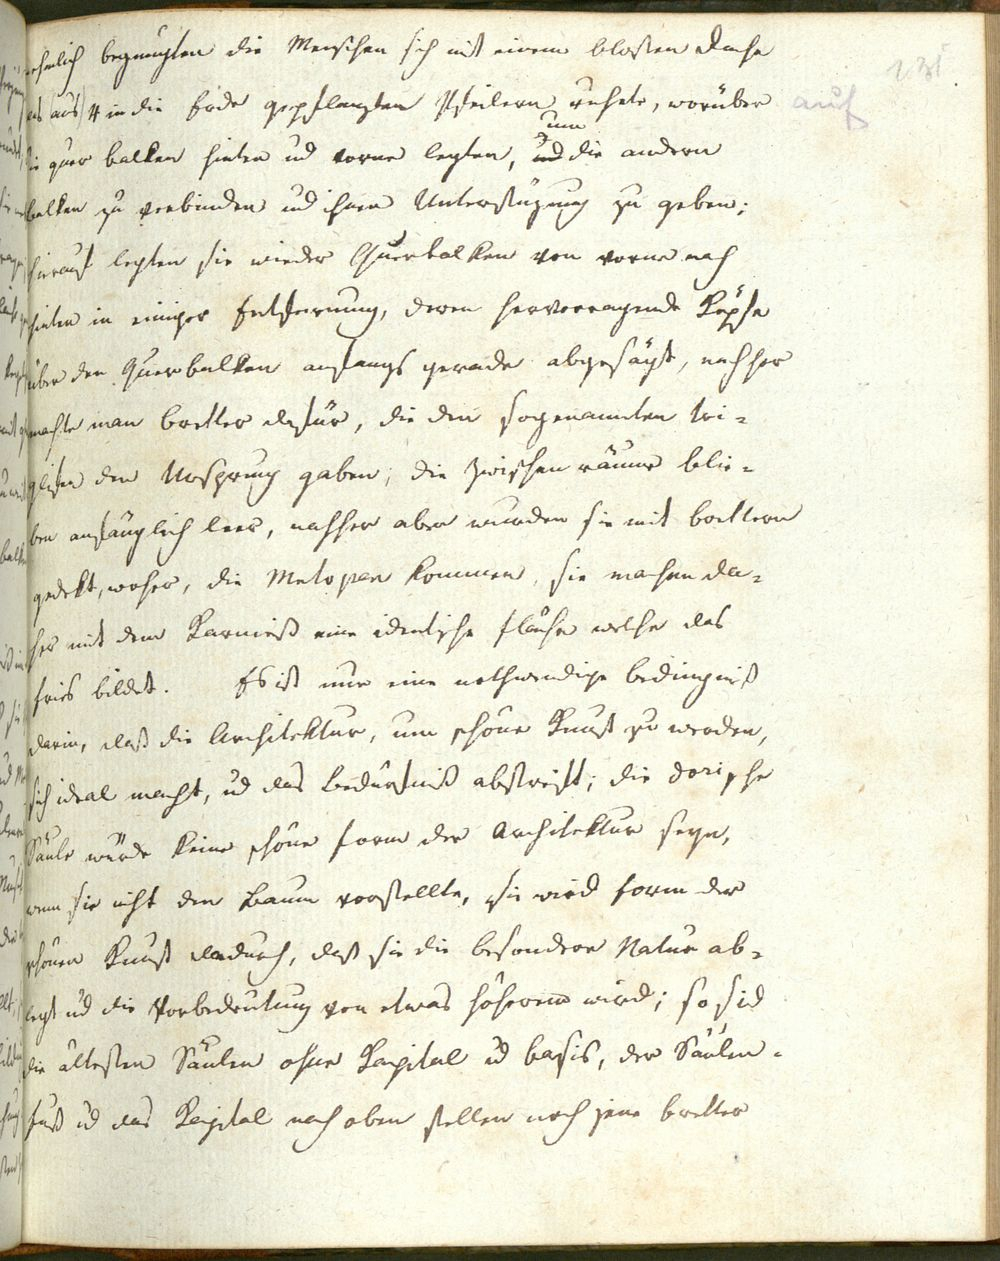 131
ehnlich begnügten die Menschen sich mit einem blosen Dache
das (aus) 4 in die Erde gepflanzten Pfeilern ruhete, worüber auf
sie quer balken hinten ud vorne legten, um ud die andern
balken zu verbinden ud ihnen Unterstüzung zu geben;
hierauf legten sie wieder Querbalken von vorne nach
hinten in einiger Entfernung, deren hervorragende Köpfe
über den Querbalken anfangs gerade abgesägt, nachher
machte man bretter dafür, die den sogenannten tri-
glifen den Ursprung gaben; die zwischenräume blie-
ben anfänglich leer, nachher aber wurden sie mit brettern
gedekt, woher, die Metopen kommen, sie machen da-
her mit dem Karnieß eine identische fläche welche das
fries bildet. Es ist nur eine nothwendige bedingniß
darin, daß die Architektur, um schöne Kunst zu werden,
sich ideal macht, ud das bedürfniß abstreift; die dorische
Säule würde keine schöne form der Architektur seyn,
wenn sie nicht den baum vorstellte, sie wird form der
schönen Kunst dadurch, daß sie die besondere Natur ab-
legt ud die Vorbedeutung von etwas höherem wird; so sid
die ältesten Säulen ohne Kapital ud basis, der Säulen-
fuß ud das Kapital nach oben stellen noch jene bretter